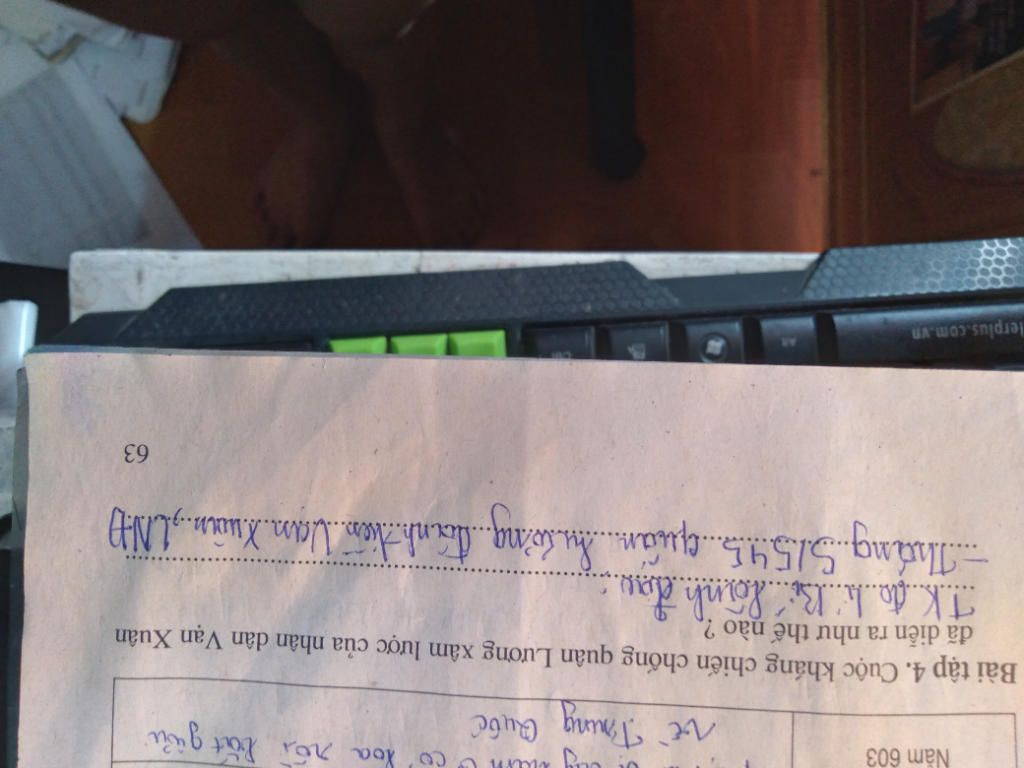 Năm 603
về Trung Quốc
Bài tập 4. Cuộc kháng chiến chống quân Lương xâm lược của nhân dân Vạn Xuân
đã diễn ra như thế nào ?
T.K do Lí Bí lãnh đạo
- Tháng 5/545 quân Lương đánh Vạn Xuân, LNĐ
63
erplus.com.vn
Alt
Ctrl